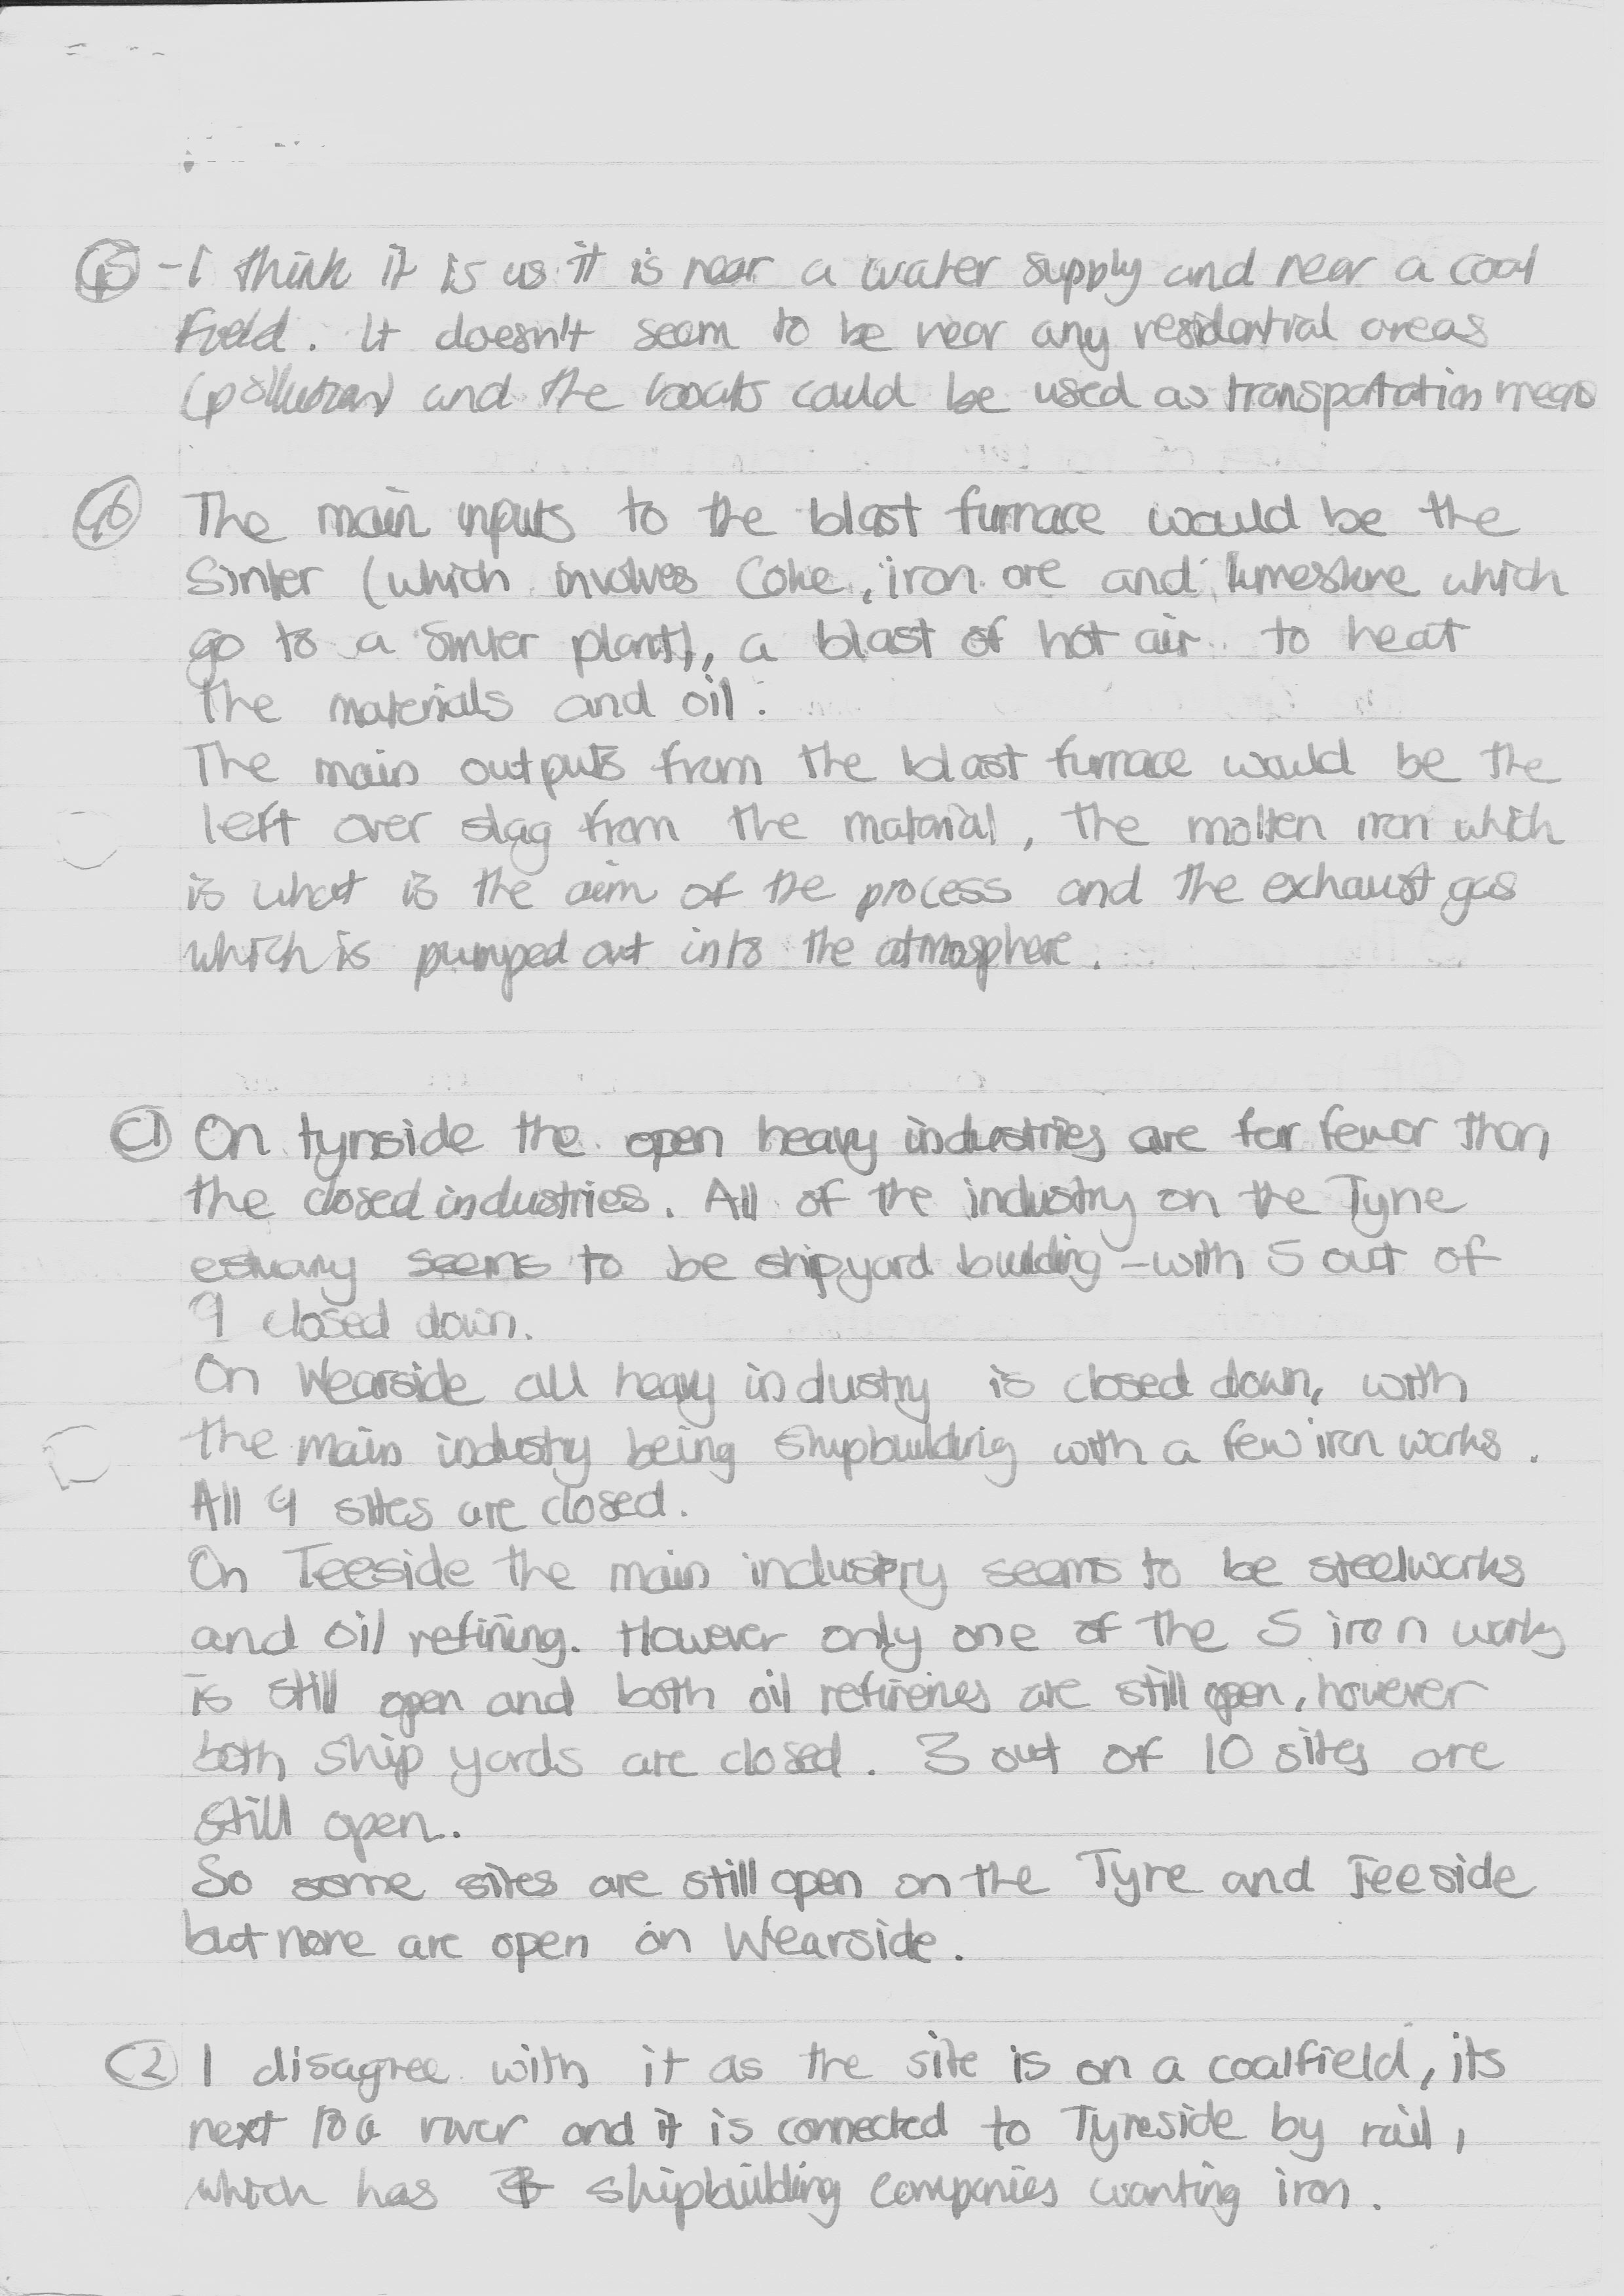 - I think it is as it is near a water supply and near a coal
Field. It doesn't seem to be near any residential areas
(pollution) and the boats could be used as transportation means
The main inputs to the blast furnace would be the
Sinter (which involves Coke, iron ore and limestone which
go to a sinter plant), a blast of hot air to heat
the materials and oil.
The main outputs from the blast furnace would be the
left over slag from the material, the molten iron which
is what is the aim of the process and the exhaust gas
which is pumped out into the atmosphere.
C1 On tynside the open heavy industries are far fewer than
the closed industries. All of the industry on the Tyne
estuary seems to be shipyard building - with 5 out of
9 closed down.
On Wearside all heavy industry is closed down, with
the main industry being shipbuilding with a few iron works.
All 9 sites are closed.
On Teeside the main industry seems to be steelworks
and oil refining. However only one of the 5 iron works
is still open and both oil refineries are still open, however
both ship yards are closed. 3 out of 10 sites are
still open.
So some sites are still open on the Tyne and Teeside
but none are open on Wearside.
C2 I disagree with it as the site is on a coalfield, its
next to a river and it is connected to Tyneside by rail,
which has shipbuilding companies wanting iron.